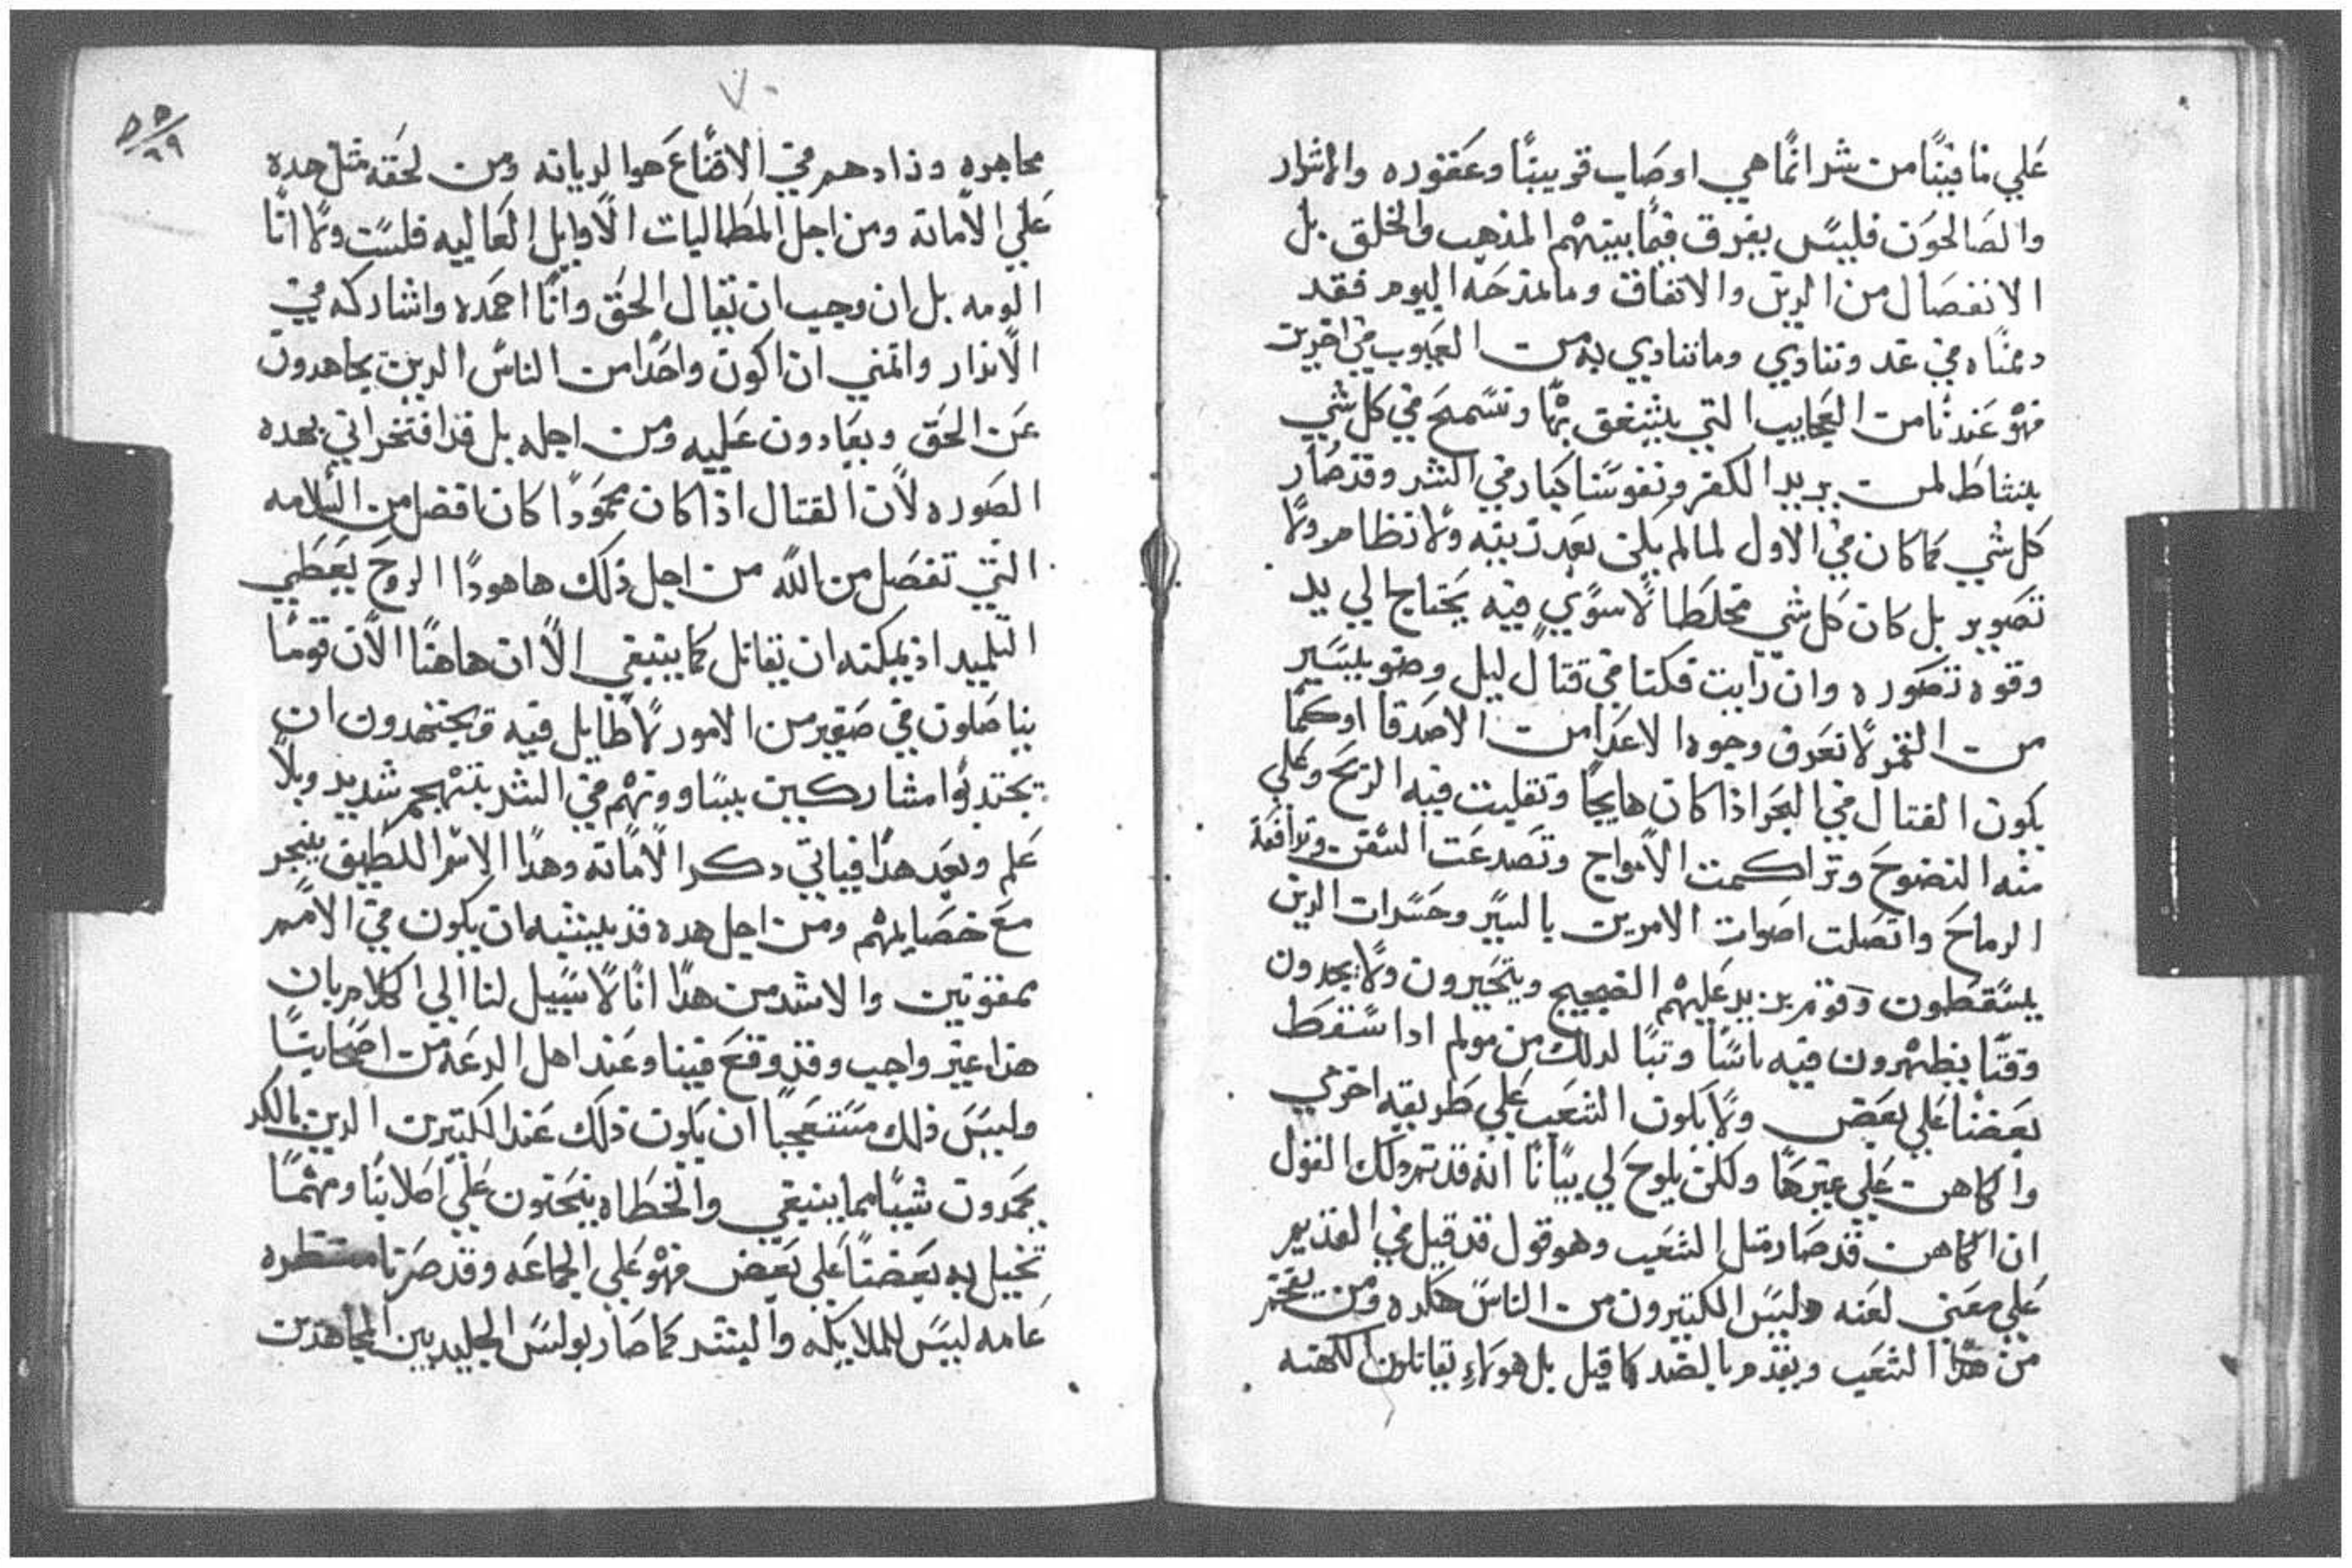 علي ما فينا من شر انما هي اوصاب قريبنا وعقوره والاشرار
والصالحون فليس يفرق فيما بينهم المذهب والخلق بل
الانفصال من الدين والاتفاق وما نمدحه اليوم فقد
دممناه في غد وتنادي وما ننادي به من العيوب في اخرين
فهو عندنا من العجايب التي يتنغق بها ونسمح في كل شي
بنشاط لمن يريد الكفر ونفوسنا كبار في الشر وقد صار
كل شي كما كان في الاول لما لم يكن بعد زينه ولا نظام ولا
تصوير بل كان كل شي مختلطا لا سوي فيه يحتاج الي يد
وقوه تصوره وان رايت فكنا في قتال ليل وضو يسير
من القمر لا نعرف وجوه الاعدا من الاصدقا او كما
يكون القتال في البحر اذا كان هايجا وتقلبت فيه الريح وعلي
منه النضوح وتراكمت الامواج وتصدعت السفن وترافعة
الرماح واتصلت اصوات الامرين بالسير وحسرات الدين
يسقطون وقوم يزيد عليهم الضجيج ويتحيرون ولا يجدون
وقتا يظهرون فيه باسا وتبا لدلك من مولم ادا سقط
بعضنا علي بعض ولا يكون الشعب علي طريقه اخري
والكاهن علي غيرها ولكن يلوح لي بيانا انه قد تم دلك القول
ان الكاهن قد صار متل الشعب وهو قول قد قيل في القديم
علي معني لعنه وليس الكتيرون من الناس هكده ومن يفتخر
من هدا الشعب ويقدم بالضد كما قيل بل هولاء يقاتلون الكهنه
٧٠
٥٥
٦٩
مجاهره وزادهم في الاقناع هوا الديانه ومن لحقه متل هده
علي الامانه ومن اجل المطاليات الاوايل العاليه فلست ولا انا
الومه بل ان وجب ان يقال الحق وانا احمده واشاركه في
الاندار واتمني ان اكون واحدا من الناس الدين يجاهدون
عن الحق ويعادون عليه ومن اجله بل قد افتخر اني بهده
الصوره لان القتال اذا كان محمودا كان افضل من السلامه
التي تفصل من الله من اجل ذلك ها هودا الروح يعطي
التلميد اذ يمكنه ان يقاتل كما ينبغي الا ان هاهنا الان قوما
يناضلون في صغير من الامور لا طايل فيه ويجتهدون ان
يجتدبوا مشاركين يساوونهم في الشر بتهجم شديد وبلا
علم وبعد هدا فياتي دكر الامانه وهدا الاسم اللطيف ينجر
مع خصايلهم ومن اجل هده قد يشبه ان يكون في الامم
ممقوتين والاشد من هدا انا لا سبيل لنا الي الكلام بان
هدا غير واجب وقد وقع فينا وعند اهل الدعه من اصحابنا
وليس ذلك مستعجبا ان يكون ذلك عند الكتيرين الدين بالكد
يحمدون شيا مما ينبغي والخطاه ينحتون علي اصلابنا ومهما
تخيل به بعضنا علي بعض فهو علي الجماعه وقد صرنا منتظره
عامه ليس للملايكه والبشر كما صار بولس الجليد بين المجاهدين